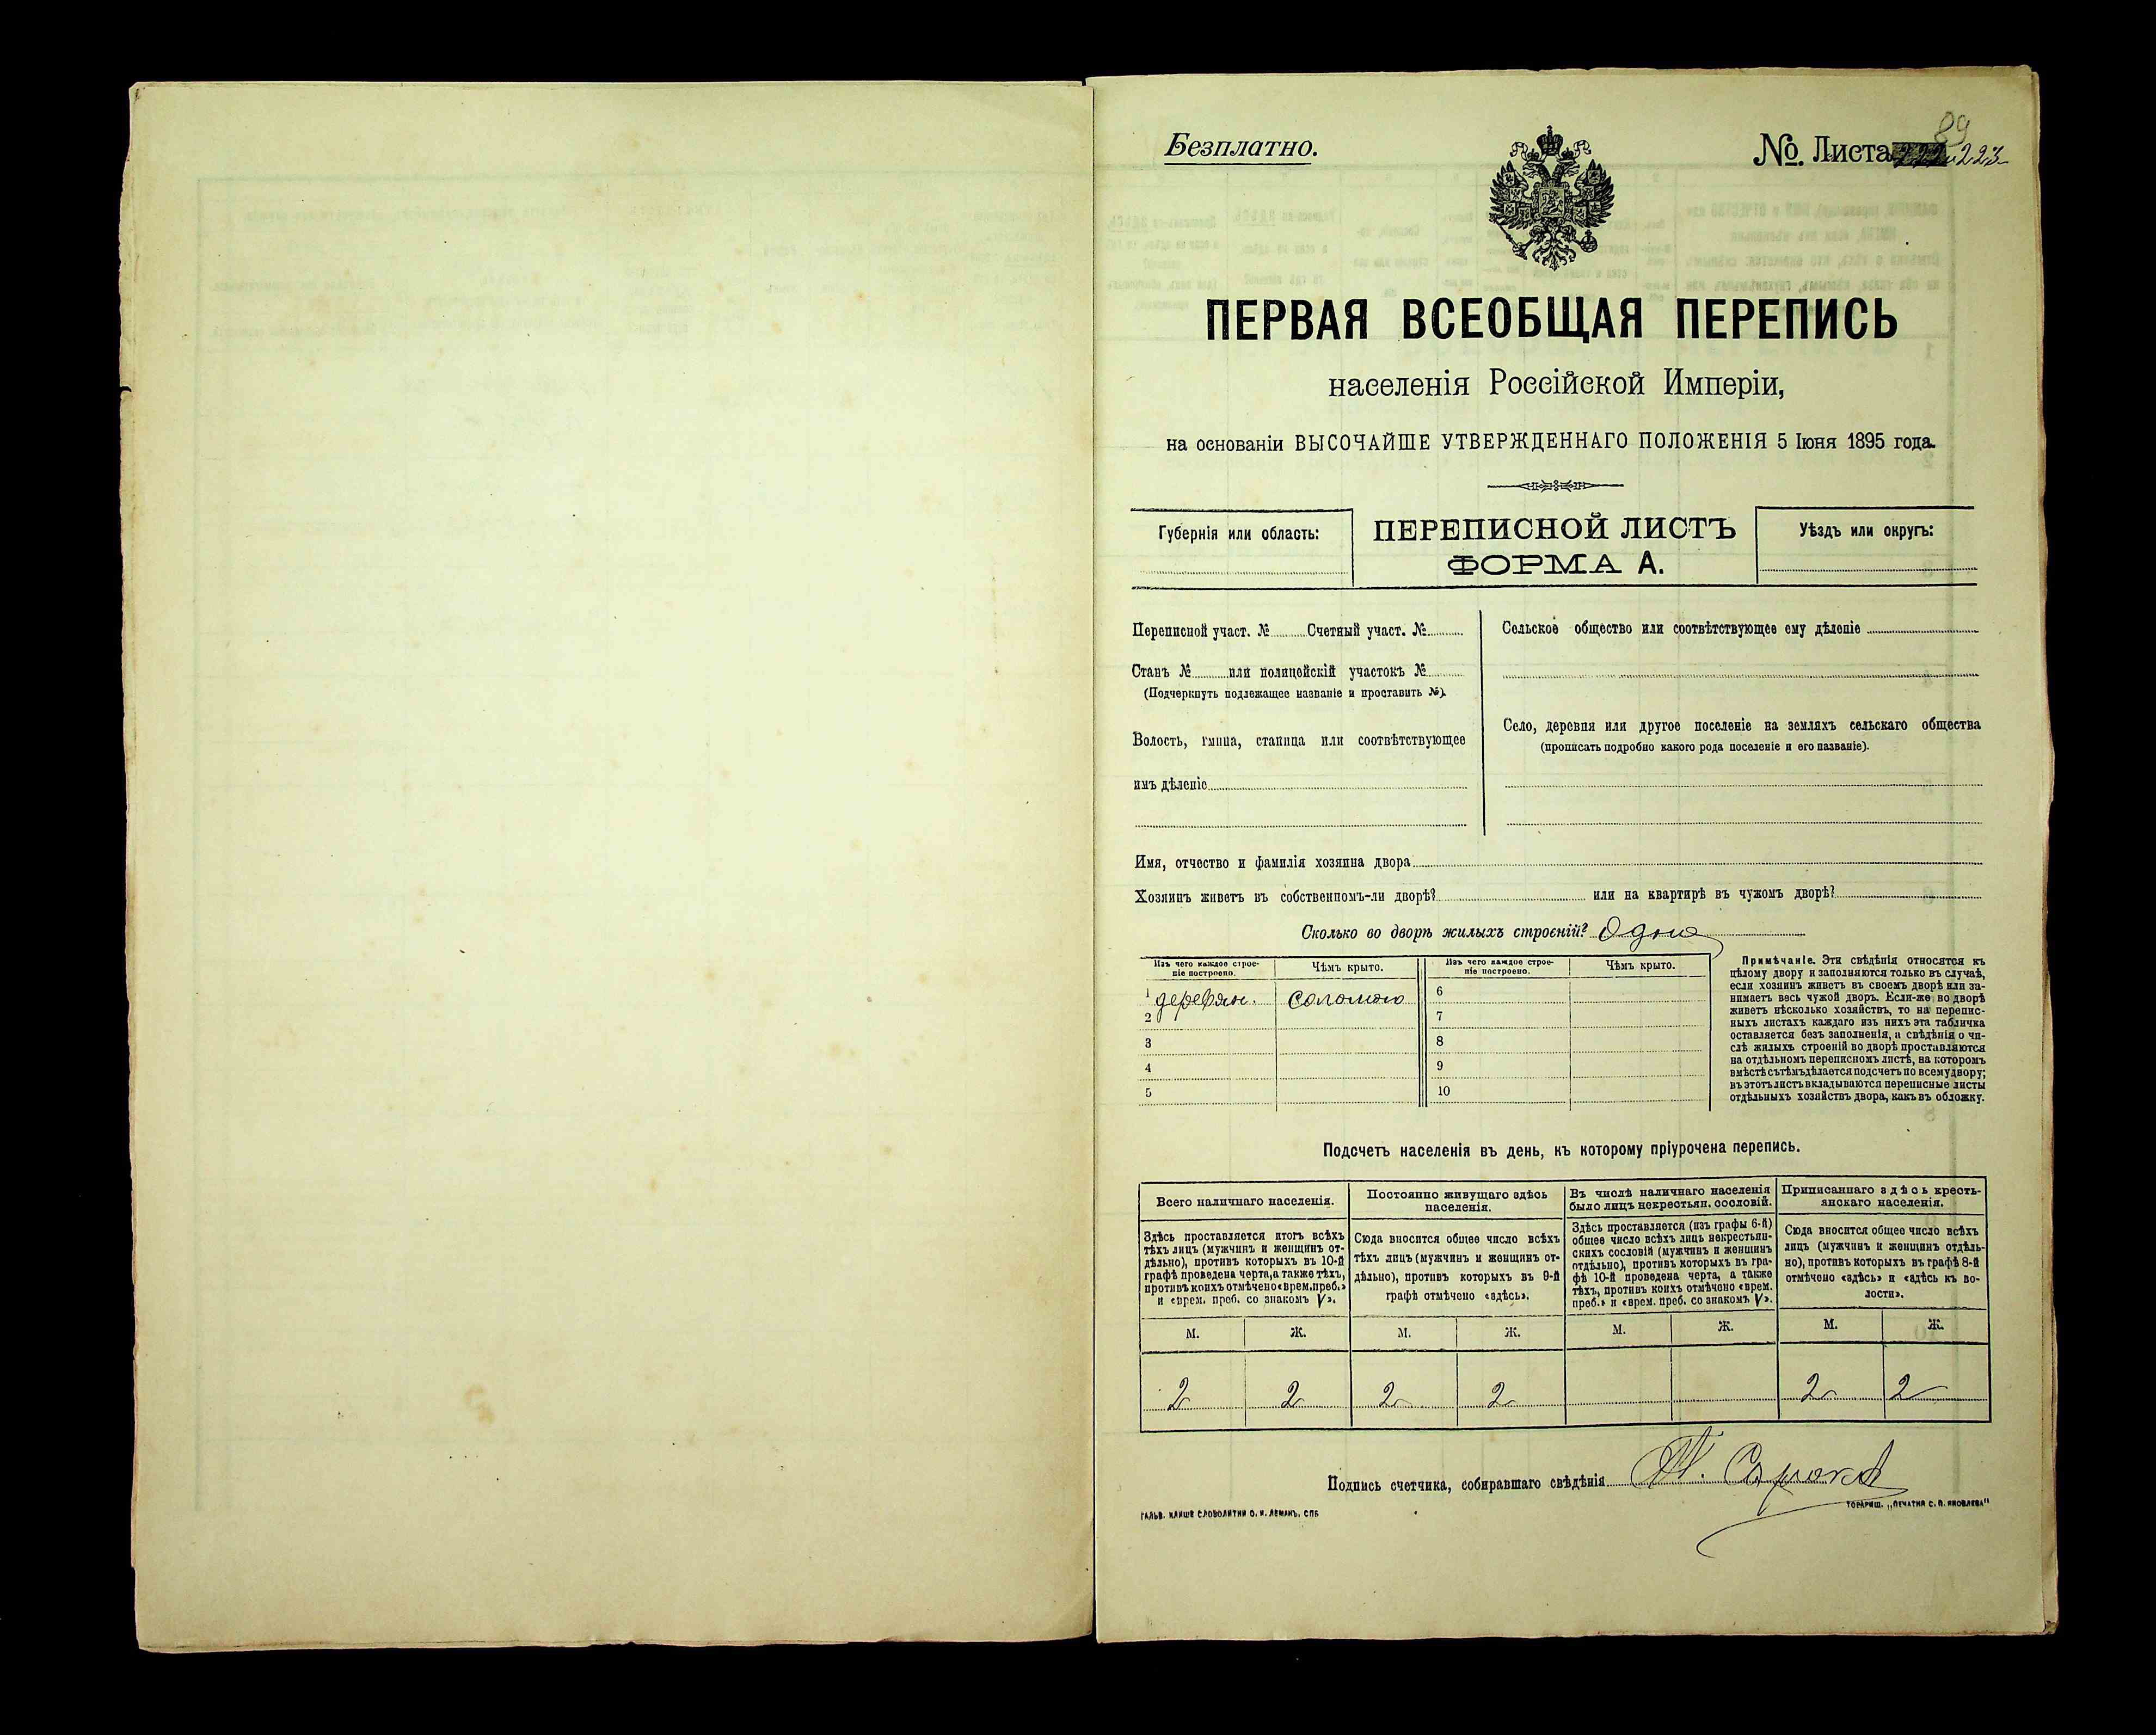 Безплатно.
№. Листа 223
89
ПЕРВАЯ ВСЕОБЩАЯ ПЕРЕПИСЬ
населенія Россійской Имперіи,
на основаніи ВЫСОЧАЙШЕ УТВЕРЖДЕННАГО ПОЛОЖЕНІЯ 5 Іюня 1895 года.
Губернія или область:
ПЕРЕПИСНОЙ ЛИСТЪ
ФОРМА А.
Уѣздъ или округъ:
Переписной участ. № Счетный участ. №
Станъ № или полицейскій участокъ №
(Подчеркнуть подлежащее названіе и проставить №).
Волость, гмина, станица или соотвѣтствующее
имъ дѣленіе
Сельское общество или соотвѣтствующее ему дѣленіе
Село, деревня или другое поселеніе на земляхъ сельскаго общества
(прописать подробно какого рода поселеніе и его названіе).
Имя, отчество и фамилія хозяина двора
Хозяинъ живетъ въ собственномъ-ли дворѣ? или на квартирѣ въ чужомъ дворѣ?
Сколько во дворѣ жилыхъ строеній? Одно
Изъ чего каждое строе-
ніе построено.
Чѣмъ крыто.
Изъ чего каждое строе-
ніе построено.
Чѣмъ крыто.
1 деревян. соломою
2
3
4
5
6
7
8
9
10
Примѣчаніе. Эти свѣдѣнія относятся къ
цѣлому двору и заполняются только въ случаѣ,
если хозяинъ живетъ въ своемъ дворѣ или за-
нимаетъ весь чужой дворъ. Если-же во дворѣ
живетъ нѣсколько хозяйствъ, то на перепис-
ныхъ листахъ каждаго изъ нихъ эта табличка
оставляется безъ заполненія, а свѣдѣнія о чи-
слѣ жилыхъ строеній во дворѣ проставляются
на отдѣльномъ переписномъ листѣ, на которомъ
вмѣстѣ съ тѣмъ дѣлается подсчетъ по всему двору;
въ этотъ листъ вкладываются переписные листы
отдѣльныхъ хозяйствъ двора, какъ въ обложку.
Подсчетъ населенія въ день, къ которому пріурочена перепись.
Всего наличнаго населенія.
Здѣсь проставляется итогъ всѣхъ
тѣхъ лицъ (мужчинъ и женщинъ от-
дѣльно), противъ которыхъ въ 10-й
графѣ проведена черта, а также тѣхъ,
противъ коихъ отмѣчено «врем. преб.»
и «врем. преб. со знакомъ V».
Постоянно живущаго здѣсь
населенія.
Сюда вносится общее число всѣхъ
тѣхъ лицъ (мужчинъ и женщинъ от-
дѣльно), противъ которыхъ въ 9-й
графѣ отмѣчено «здѣсь».
Въ числѣ наличнаго населенія
было лицъ некрестьян. сословій.
Здѣсь проставляется (изъ графы 6-й)
общее число всѣхъ лицъ некрестьян-
скихъ сословій (мужчинъ и женщинъ
отдѣльно), противъ которыхъ въ гра-
фѣ 10-й проведена черта, а также
тѣхъ, противъ коихъ отмѣчено «врем.
преб.» и «врем. преб. со знакомъ V».
Приписаннаго здѣсь кресть-
янскаго населенія.
Сюда вносится общее число всѣхъ
лицъ (мужчинъ и женщинъ отдѣль-
но), противъ которыхъ въ графѣ 8-й
отмѣчено «здѣсь» и «здѣсь къ во-
лости».
М. Ж. М. Ж. М. Ж. М. Ж.
2 2 2 2 2 2
Подпись счетчика, собиравшаго свѣдѣнія
ГАЛЬВ. КЛИШЕ СЛОВОЛИТНИ О. И. ЛЕМАНЪ, СПБ
ТОВАРИЩ. „ПЕЧАТНЯ С. П. ЯКОВЛЕВА"